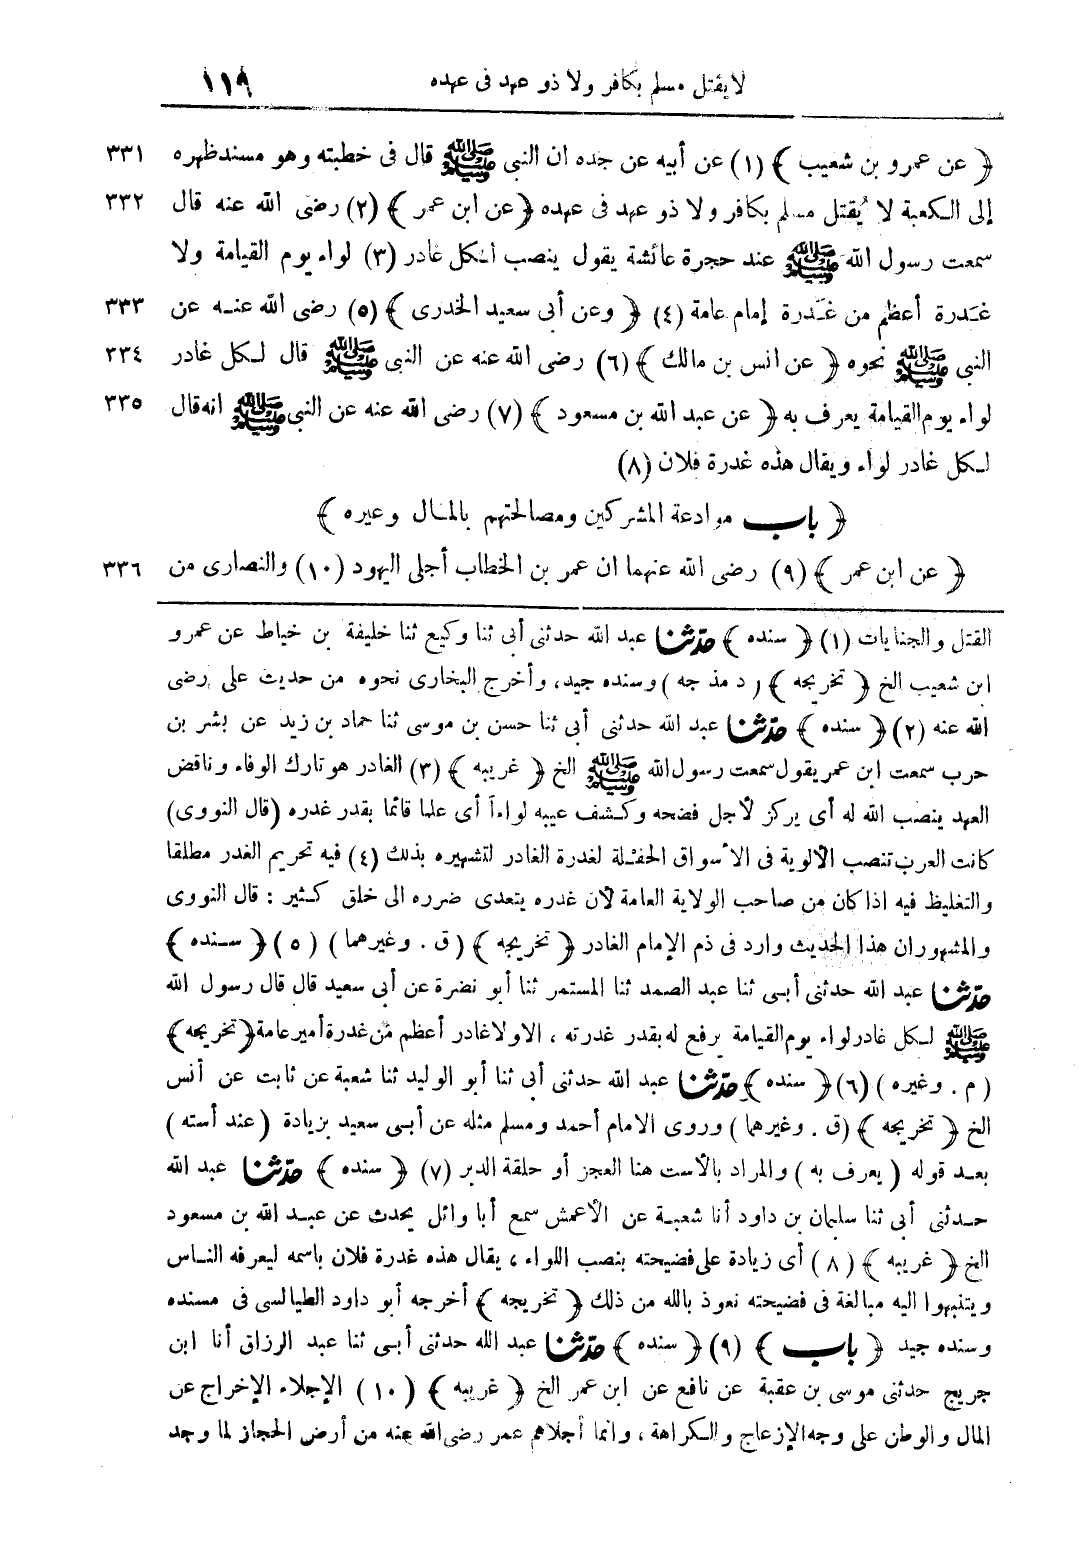 لا يقتل مسلم بكافر ولا ذو عهد فى عهده ١١٩
﴿ عن عمرو بن شعيب ﴾ (١) عن أبيه عن جده ان النبى ﷺ قال فى خطبته وهو مسند ظهره ٣٣١
إلى الكعبة لا يُقتل مسلم بكافر ولا ذو عهد فى عهده ﴿ عن ابن عمر ﴾ (٢) رضى الله عنه قال ٣٣٢
سمعت رسول الله ﷺ عند حجرة عائشة يقول ينصب لكل غادر (٣) لواء يوم القيامة ولا
غَدرة أعظم من غَدرة إمام عامة (٤) ﴿ وعن أبى سعيد الخدرى ﴾ (٥) رضى الله عنه عن ٣٣٣
النبى ﷺ نحوه ﴿ عن انس بن مالك ﴾ (٦) رضى الله عنه عن النبى ﷺ قال لكل غادر ٣٣٤
لواء يوم القيامة يعرف به ﴿ عن عبد الله بن مسعود ﴾ (٧) رضى الله عنه عن النبى ﷺ انه قال ٣٣٥
لكل غادر لواء ويقال هذه غدرة فلان (٨)
﴿ باب موادعة المشركين ومصالحتهم بالمال وغيره ﴾
﴿ عن ابن عمر ﴾ (٩) رضى الله عنهما ان عمر بن الخطاب أجلى اليهود (١٠) والنصارى من ٣٣٦
القتل والجنايات (١) ﴿ سنده ﴾ حدّثنا عبد الله حدثنى أبى ثنا وكيع ثنا خليفة بن خياط عن عمرو
ابن شعيب الخ ﴿ تخريجه ﴾ ( د مذ جه ) وسنده جيد، وأخرج البخارى نحوه من حديث على رضى
الله عنه (٢) ﴿ سنده ﴾ حدّثنا عبد الله حدثنى أبى ثنا حسن بن موسى ثنا حماد بن زيد عن بشر بن
حرب سمعت ابن عمر يقول سمعت رسول الله ﷺ الخ ﴿ غريبه ﴾ (٣) الغادر هو تارك الوفاء وناقض
العهد ينصب الله له أى يركز لأجل فضحه وكشف عيبه لواءاً أى علما قائما بقدر غدره (قال النووى)
كانت العرب تنصب الألوية فى الأسواق الحفلة لغدرة الغادر لتشهيره بذلك (٤) فيه تحريم الغدر مطلقا
والتغليظ فيه اذا كان من صاحب الولاية العامة لأن غدره يتعدى ضرره الى خلق كثير : قال النووى
والمشهور ان هذا الحديث وارد فى ذم الإمام الغادر ﴿ تخريجه ﴾ (ق . وغيرهما) (٥) ﴿ سنده ﴾
حدّثنا عبد الله حدثنى أبى ثنا عبد الصمد ثنا المستمر ثنا أبو نضرة عن أبى سعيد قال قال رسول الله
ﷺ لكل غادر لواء يوم القيامة يرفع له بقدر غدرته ، الا ولا غادر أعظم من غدرة أمير عامة ﴿ تخريجه ﴾
( م . وغيره ) (٦) ﴿ سنده ﴾ حدّثنا عبد الله حدثنى أبى ثنا أبو الوليد ثنا شعبة عن ثابت عن أنس
الخ ﴿ تخريجه ﴾ (ق . وغيرهما) وروى الامام أحمد ومسلم مثله عن أبى سعيد بزيادة ( عند أسته )
بعد قوله ( يعرف به ) والمراد بالأست هنا العجز أو حلقة الدبر (٧) ﴿ سنده ﴾ حدّثنا عبد الله
حدثنى أبى ثنا سليمان بن داود أنا شعبة عن الأعمش سمع أبا وائل يحدث عن عبد الله بن مسعود
الخ ﴿ غريبه ﴾ (٨) أى زيادة على فضيحته بنصب اللواء ، يقال هذه غدرة فلان باسمه ليعرفه الناس
ويتنبهوا اليه مبالغة فى فضيحته نعوذ بالله من ذلك ﴿ تخريجه ﴾ أخرجه أبو داود الطيالسى فى مسنده
وسنده جيد ﴿ باب ﴾ (٩) ﴿ سنده ﴾ حدّثنا عبد الله حدثنى أبى ثنا عبد الرزاق أنا ابن
جريج حدثنى موسى بن عقبة عن نافع عن ابن عمر الخ ﴿ غريبه ﴾ (١٠) الإجلاء الإخراج عن
المال والوطن على وجه الإزعاج والكراهة ، وانما أجلاهم عمر رضى الله عنه من أرض الحجاز لما وجد